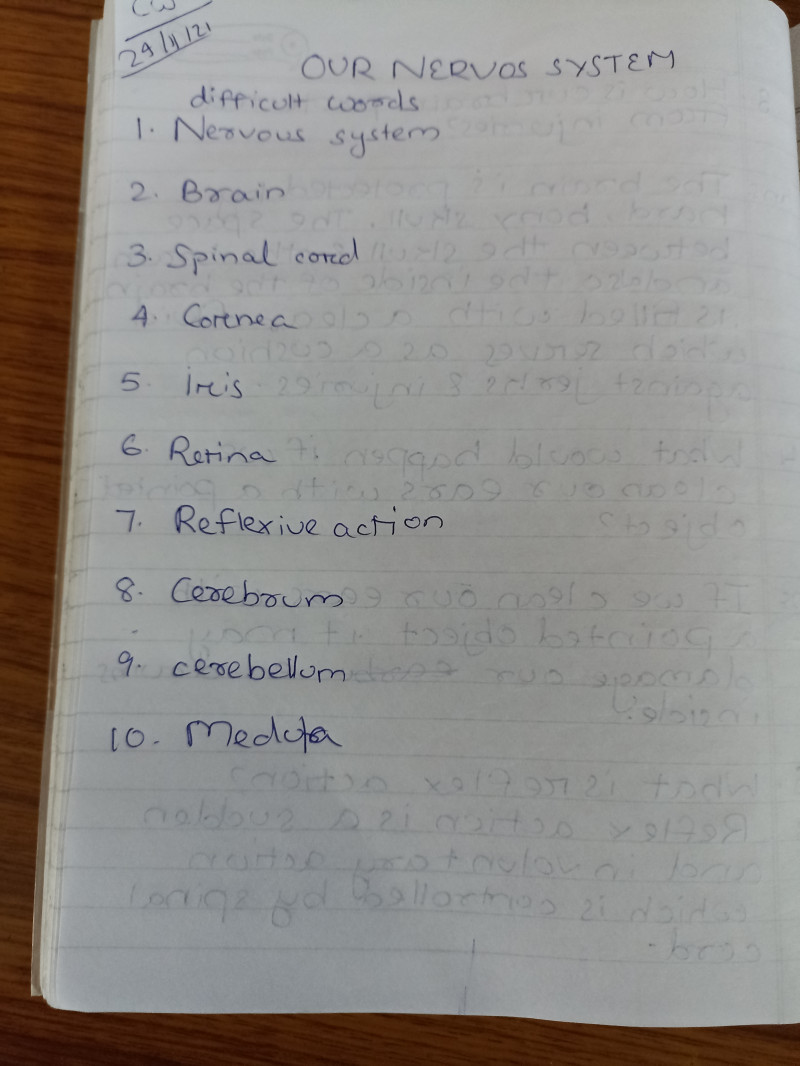 CW
29/11/21
OUR NERVOS SYSTEM
difficult words
1. Nervous system
2. Brain
3. Spinal cord
4. Cornea
5. Iris
6. Retina
7. Reflexive action
8. Cerebrum
9. cerebellum
10. Medula